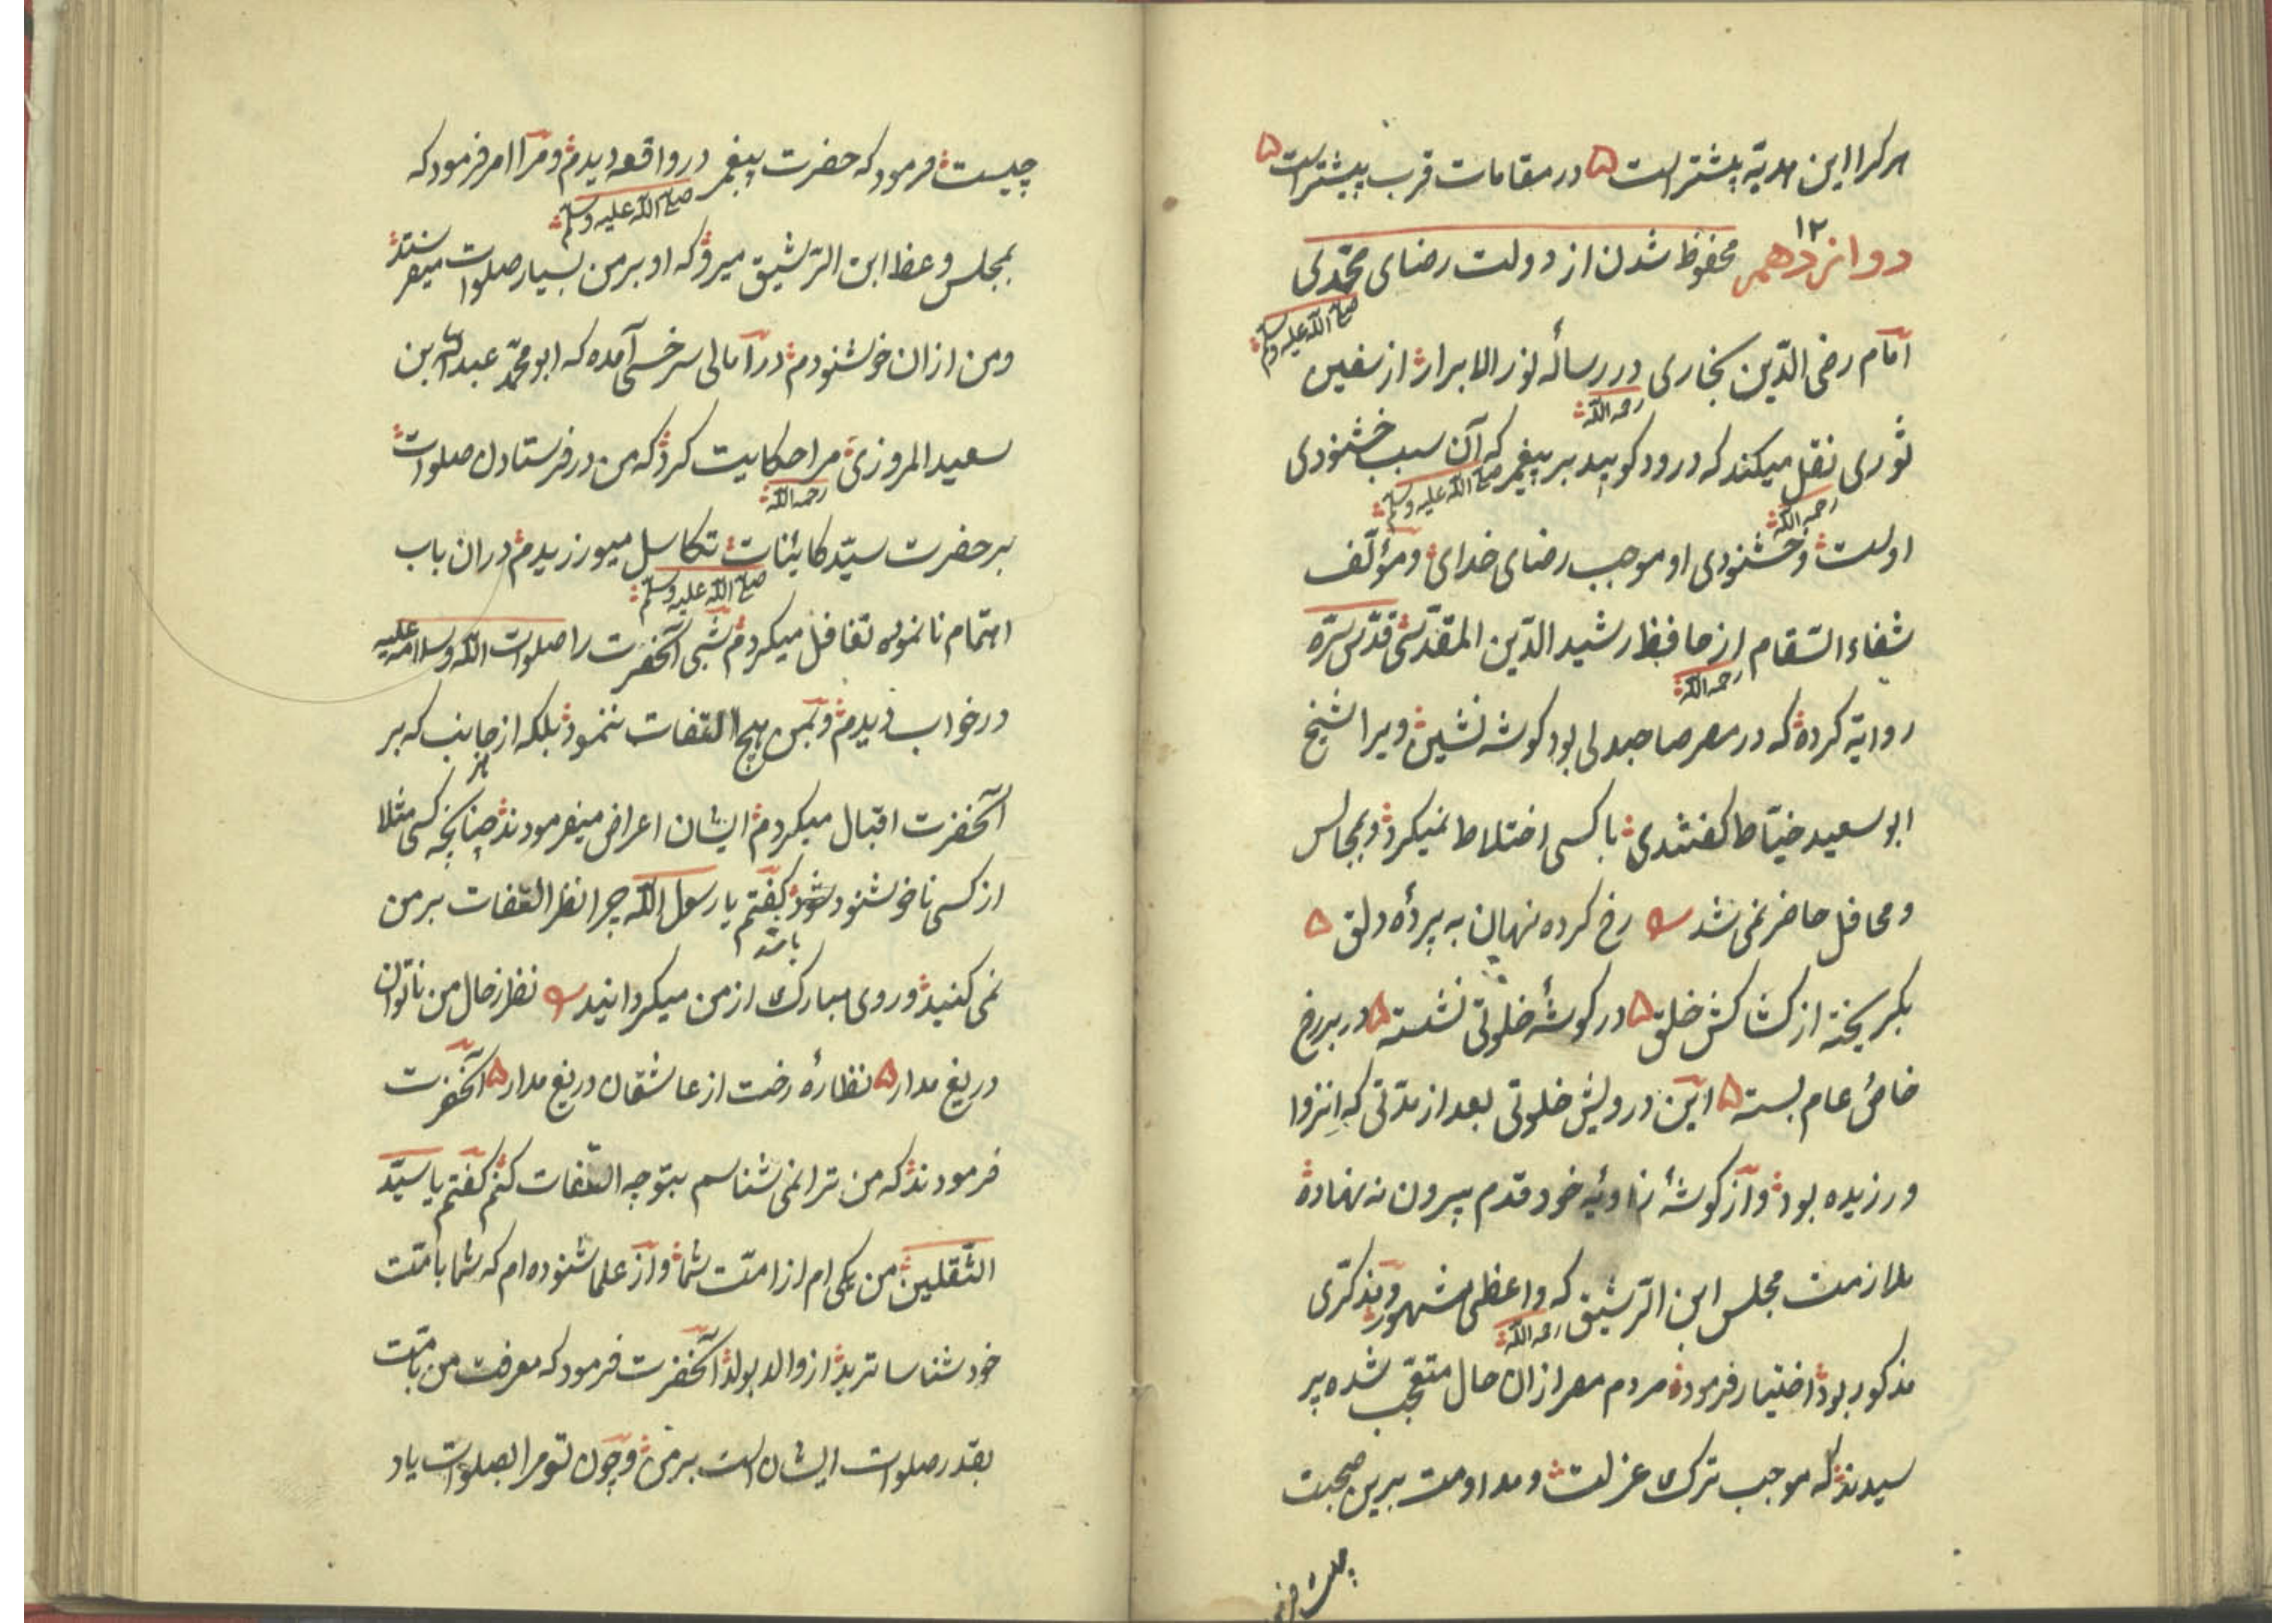 هرکرا این هدیه پیشتر است ۵ در مقامات قرب پیشتر است ۵
۱۲
دوازدهم محفوظ شدن از دولت رضای محمدی
صلی الله علیه وسلم
امام رضی الدین بخاری در رساله نور الابرار از سفین
رحمه الله
ثوری نقل میکند که درود کویید بر پیغمبر که آن سبب خشنودی
رحمه الله صلی الله علیه وسلم
اوست وخشنودی او موجب رضای خدای ومؤلف
شفاء السقام از حافظ رشید الدین المقدسی قدس سره
رحمه الله
روایة کرده که در مصر صاحبدلی بود کوشه نشین ویرا شیخ
ابو سعید خیاط کفتندی با کسی اختلاط نمیکرد وبمجالس
ومحافل حاضر نمی شد رخ کرده نهان به پردهٔ دلق ۵
بکریخته از کشاکش خلق ۵ در کوشهٔ خلوتی نشسته ۵ در بر رخ
خاص عام بسته ۵ این درویش خلوتی بعد از مدتی که انزوا
ورزیده بود واز کوشهٔ زاویهٔ خود قدم بیرون نه نهاده
ملازمت مجلس ابن الرشیق که واعظی مشهور ومذکری
رحمه الله
مذکور بود اختیار فرموده مردم مصر از ان حال متعجب شده پر
سیدند که موجب ترک عزلت ومداومت برین صحبت
چیست فر
چیست فرمود که حضرت پیغمبر در واقعه دیدم ومرا امر فرمود که
صلی الله علیه وسلم
بمجلس وعظ ابن الرشیق میرو که او بر من بسیار صلوات میفرستد
ومن از ان خوشنودم در آمالی سرخسی آمده که ابو محمد عبدالله بن
سعید المروزی مرا حکایت کرد که من در فرستادن صلوات
رحمه الله
بر حضرت سید کائنات تکاسل میورزیدم دران باب
صلی الله علیه وسلم
اهتمام نانموده تغافل میکردم شبی آنحضرت را صلوات الله وسلامه علیه
در خواب دیدم وبمن هیچ التفات ننمود بلکه از جانب که بر
هر
آنحضرت اقبال میکردم ایشان اعراض میفرمودند چنانچه کسی مثلا
از کسی ناخوشنود شود کفتم یا رسول الله چرا نظر التفات بر من
باشد
نمی کنید وروی مبارک از من میکردانید نظر ز حال من ناتوان
دریغ مدار ۵ نظارهٔ رخت از عاشقان دریغ مدار ۵ آنحضرت
فرمودند که من ترا نمی شناسم بتو چه التفات کنم کفتم یا سید
الثقلین من یکی ام از امت شما واز علما شنوده ام که شما بامت
خود شناسا ترید از والد بولد آنحضرت فرمود که معرفت من بامت
بقدر صلوات ایشان است بر من وچون تو مرا بصلوات یاد